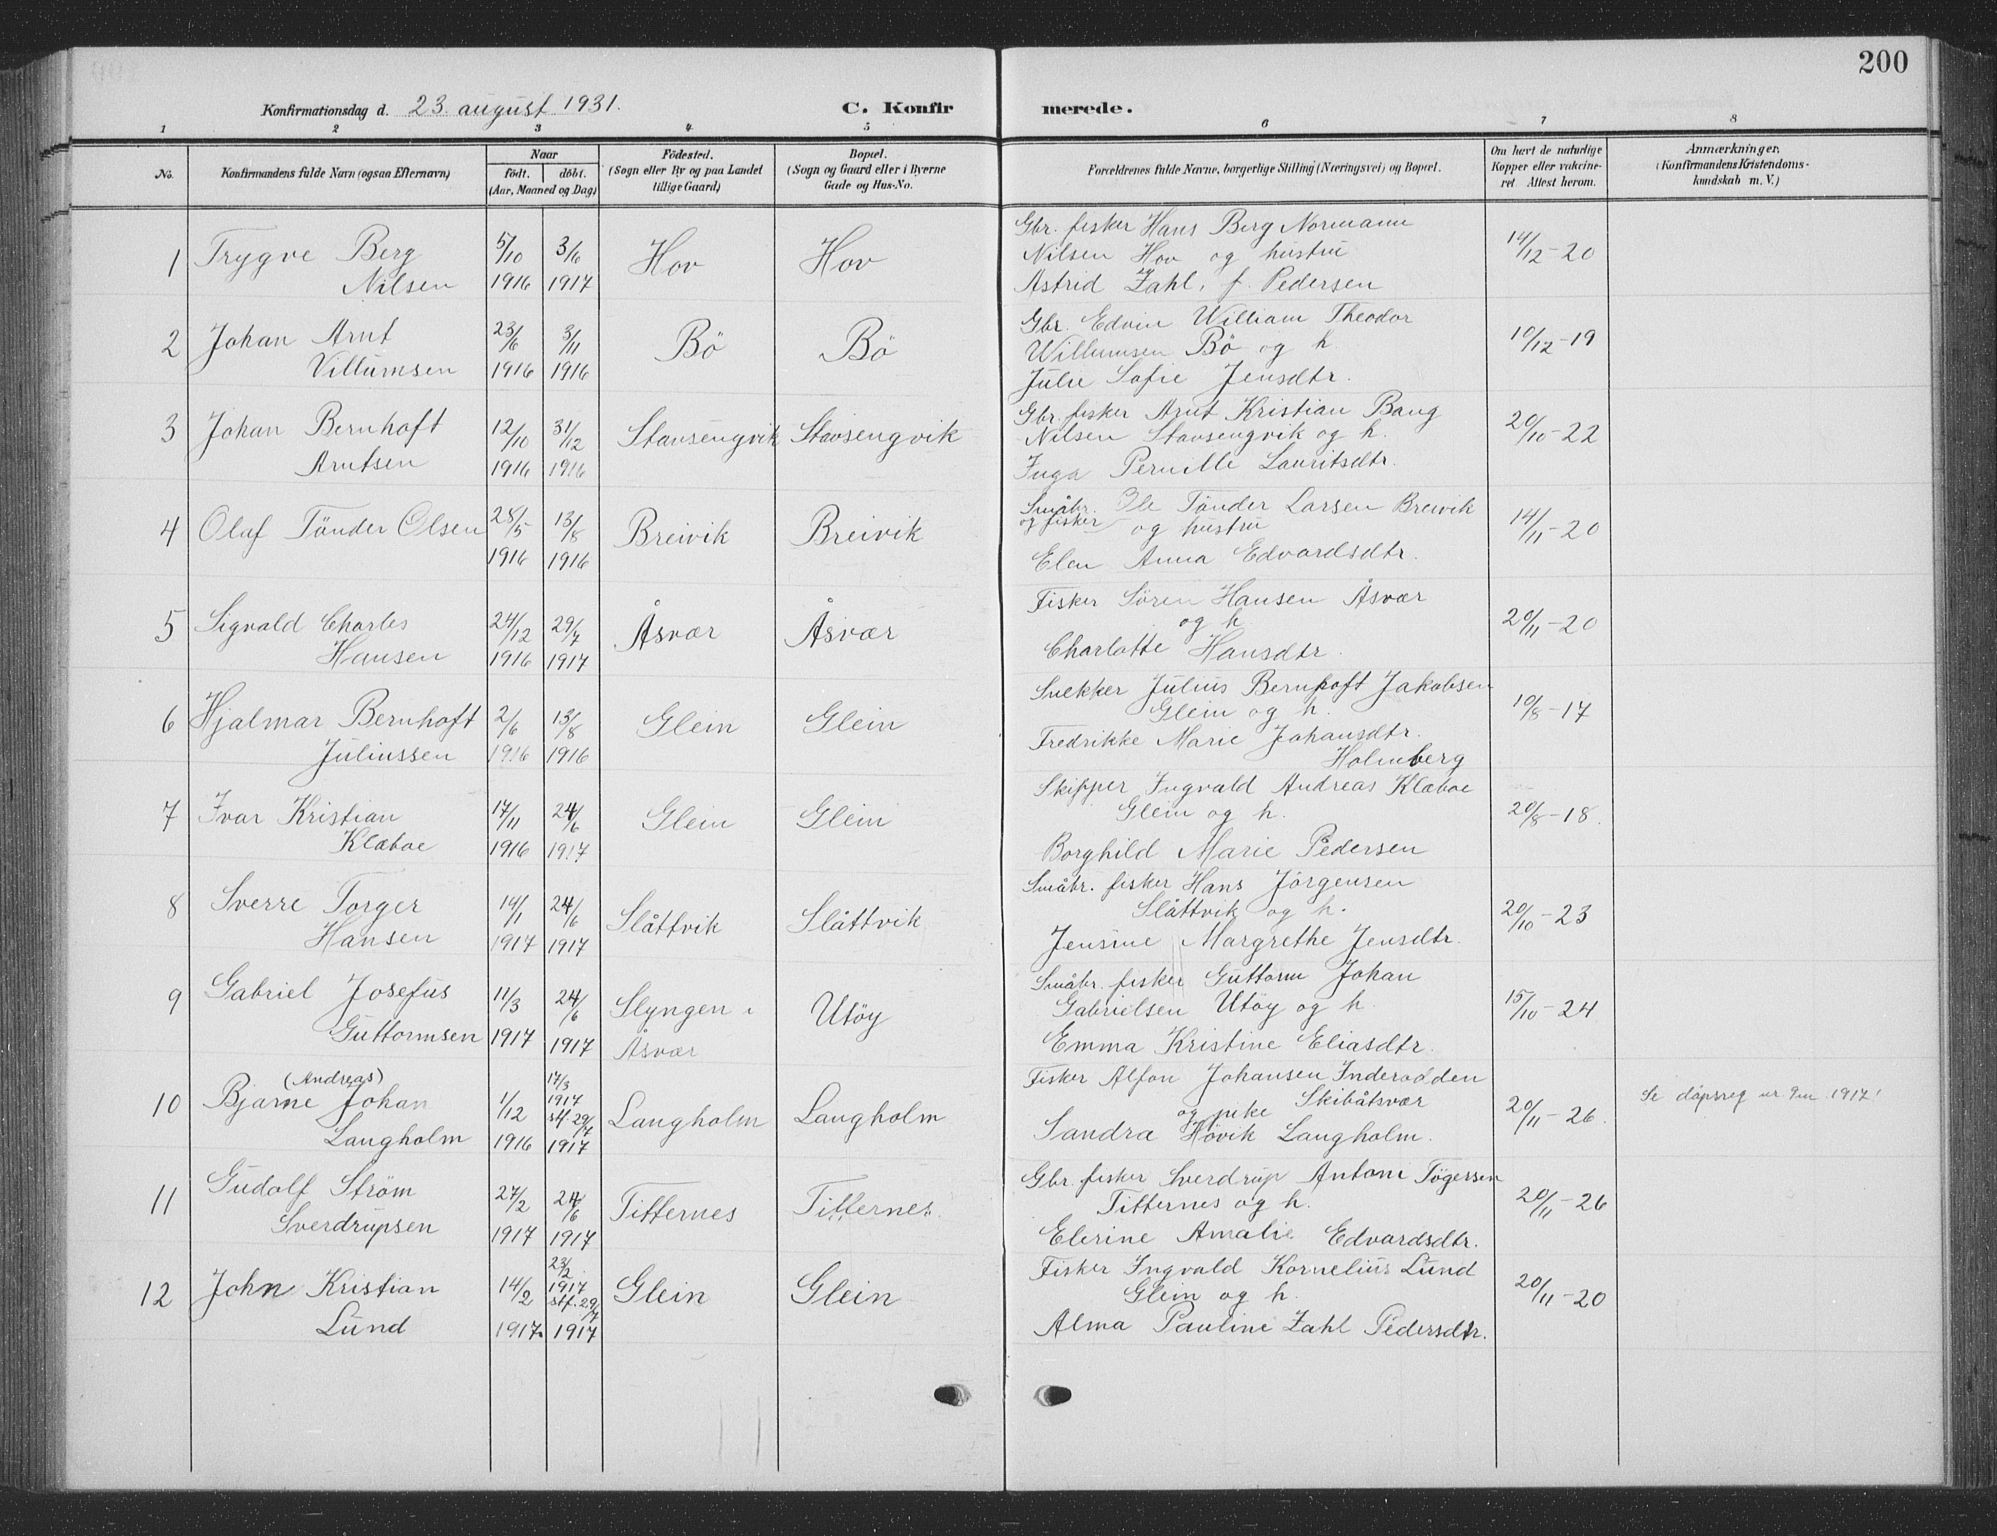 200
Konfirmationsdag d. 23. august 1931.
C. Konfirmerede.
1 2 3 4 5 6 7 8
No.
Konfirmandens fulde Navn (ogsaa Efternavn)
Naar
født. døbt.
(Aar, Maaned og Dag)
Fødested.
(Sogn eller By og paa Landet
tillige Gaard)
Bopæl.
(Sogn og Gaard eller i Byerne
Gade og Hus-No.
Forældrenes fulde Navne, borgerlige Stilling (Næringsvei) og Bopæl.
Om havt de naturlige
Kopper eller vakcine-
ret Attest herom.
Anmærkninger.
(Konfirmandens Kristendoms-
kundskab m. V.)
1 Trygve Berg
Nilsen
5/10
1916
3/6
1917
Hov
Hov
Gbr. fisker Hans Berg Normann
Nilsen Hov og hustru
Astrid Zahl, f. Pedersen
14/12-20
2 Johan Arnt
Villumsen
23/6
1916
3/11
1916
Bö
Bö
Gbr. Edvin William Theodor
Willumsen Bö og h.
Julie Sofie Jensdtr.
10/12-19
3 Johan Bernhoft
Arntsen
12/10
1916
31/12
1916
Stavsengvik
Stavsengvik
Gbr. fisker Arnt Kristian Bang
Nilsen Stavsengvik og h.
Inga Pernille Lauritsdtr.
20/10-22
4 Olaf Tönder Olsen
28/5
1916
13/8
1916
Breivik
Breivik
Småbr. Ole Tönder Larsen Breivik
og fisker og hustru
Elen Anna Edvardsdtr.
14/11-20
5 Sigvald Charles
Hansen
24/12
1916
29/7
1917
Åsvær
Åsvær
Fisker Sören Hansen Åsvær
og h
Charlotte Hansdtr.
20/11-20
6 Hjalmar Bernhoft
Juliussen
2/6
1916
13/8
1916
Glein
Glein
Snekker Julius Bernhoft Jakobsen
Glein og h.
Fredrikke Marie Johansdtr.
Holmberg
10/8-17
7 Ivar Kristian
Klæboe
17/11
1916
24/6
1917
Glein
Glein
Skipper Ingvald Andreas Klæboe
Glein og h.
Borghild Marie Pedersen
20/8-18.
8 Sverre Torger
Hansen
14/1
1917
24/6
1917
Slåttvik
Slåttvik
Småbr. fisker Hans Jörgensen
Slåttvik og h.
Jensine Margrethe Jensdtr.
20/10-23
9 Gabriel Josefus
Guttormsen
11/3
1917
24/6
1917
Slyngen i
Åsvær
Utöy
Småbr. fisker Guttorm Johan
Gabrielsen Utöy og h.
Emma Kristine Eliasdtr.
15/10-24
10 (Andreas)
Bjarne Johan
Langholm
1/12
1916
17/3
1917
stf. 29/7
1917
Langholm
Langholm
Fisker Alfon Johansen Inderodden
og pike Skibåtsvær
Sandra Hövik Langholm.
20/11-26.
Se dåpsreg nr 1917!
11 Gudolf Ström
Sverdrupsen
27/2
1917
24/6
1917
Titternes
Titternes.
Gbr. fisker Sverdrup Antoni Tögersen
Titternes og h.
Elerine Amalie Edvardsdtr.
20/11-26
12 John Kristian
Lund
14/2
1917.
23/2
1917
stf. 29/7
1917
Glein
Glein
Fisker Ingvald Kornelius Lund
Glein og h.
Alma Pauline Zahl Pedersdtr.
20/11-20